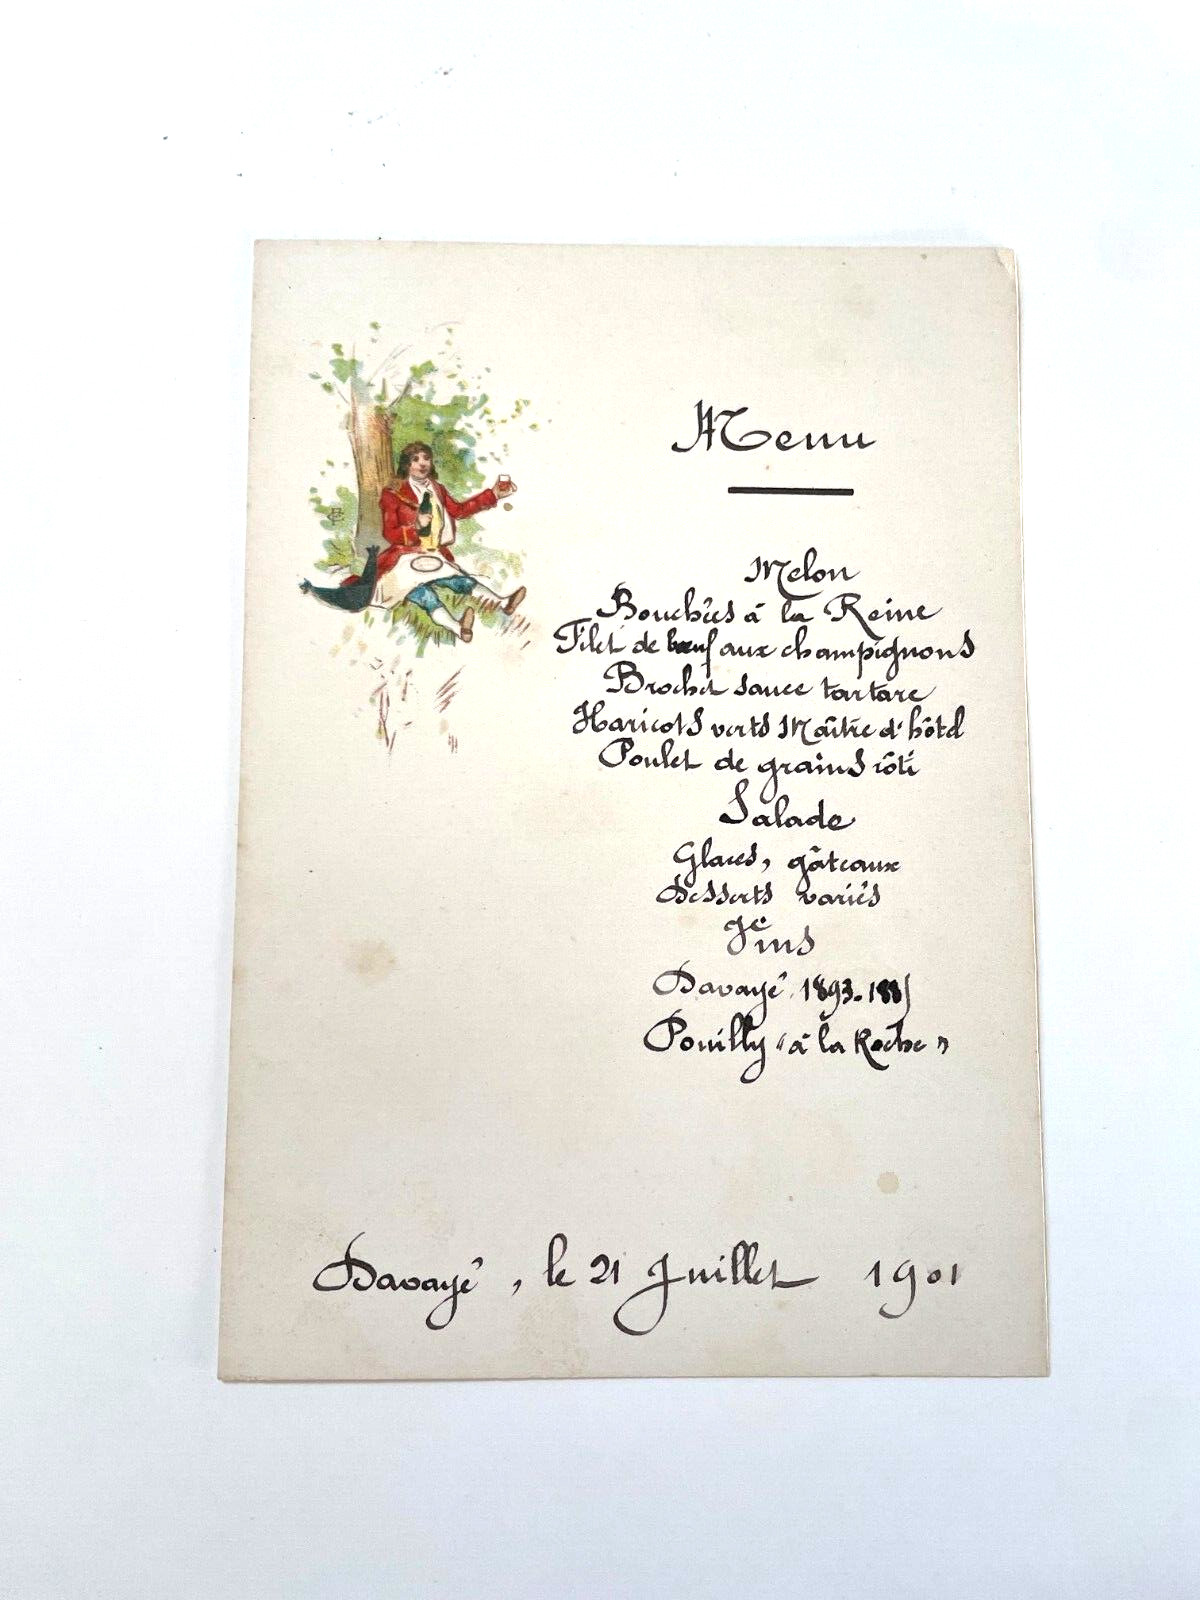 Menu
Melon
Bouchées à la Reine
Filet de bœuf aux champignons
Brochet sauce tartare
Haricots verts Maître d'hôtel
Poulet de grains rôti
Salade
Glaces, gâteaux
Desserts variés
Vins
Davayé 1893-
Pouilly "à la Roche"
Davayé, le 21 Juillet 1901